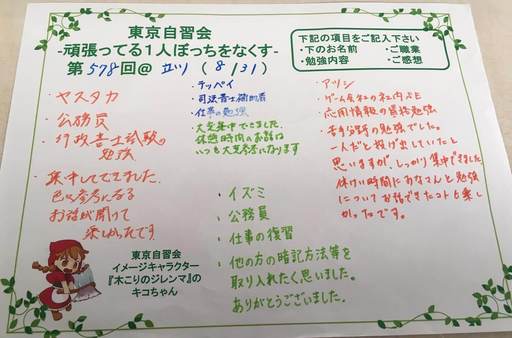 東京自習会
-頑張ってる1人ぼっちをなくす-
第578回@ 立川 ( 8 / 31 )
下記の項目をご記入下さい
・下のお名前 ・ご職業
・勉強内容 ・ご感想
・ヤスタカ
・公務員
・行政書士試験の
勉強
・集中してできました。
色々参考になる
お話が聞けて
楽しかったです
・テッペイ
・司法書士補助者
・仕事の勉強
・大変集中できました。
休憩時間のお話は
いつも大変参考になります
・アツシ
・ゲーム会社の社内SE
・応用情報の資格勉強
・苦手な分野の勉強でした。
一人だと投げ出していたと
思いますが、しっかり集中できました
休けい時間にみなさんと勉強
についてお話できたコトも楽し
かったです。
・イズミ
・公務員
・仕事の復習
・他の方の暗記方法等を
取り入れたく思いました。
ありがとうございました。
東京自習会
イメージキャラクター
『木こりのジレンマ』の
キコちゃん